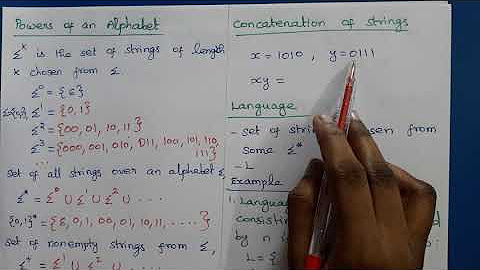 Powers of an Alphabet
Σᵏ is the set of strings of length
k chosen from Σ.
Σ⁰ = {ε}
Σ={0,1} Σ¹ = {0,1}
Σ² = {00, 01, 10, 11}
Σ³ = {000, 001, 010, 011, 100, 101, 110,
111}
set of all strings over an alphabet Σ
Σ* = Σ⁰ ∪ Σ¹ ∪ Σ² ∪ ....
{0,1}* = {ε, 0, 1, 00, 01, 10, 11, ......}
set of nonempty strings from Σ,
Σ⁺ = Σ¹ ∪ Σ² ∪ ...
Concatenation of strings
x = 1010 , y = 0111
xy =
Language
- set of chosen from
some Σ*
- L
Example
1. Language
by n
L = {